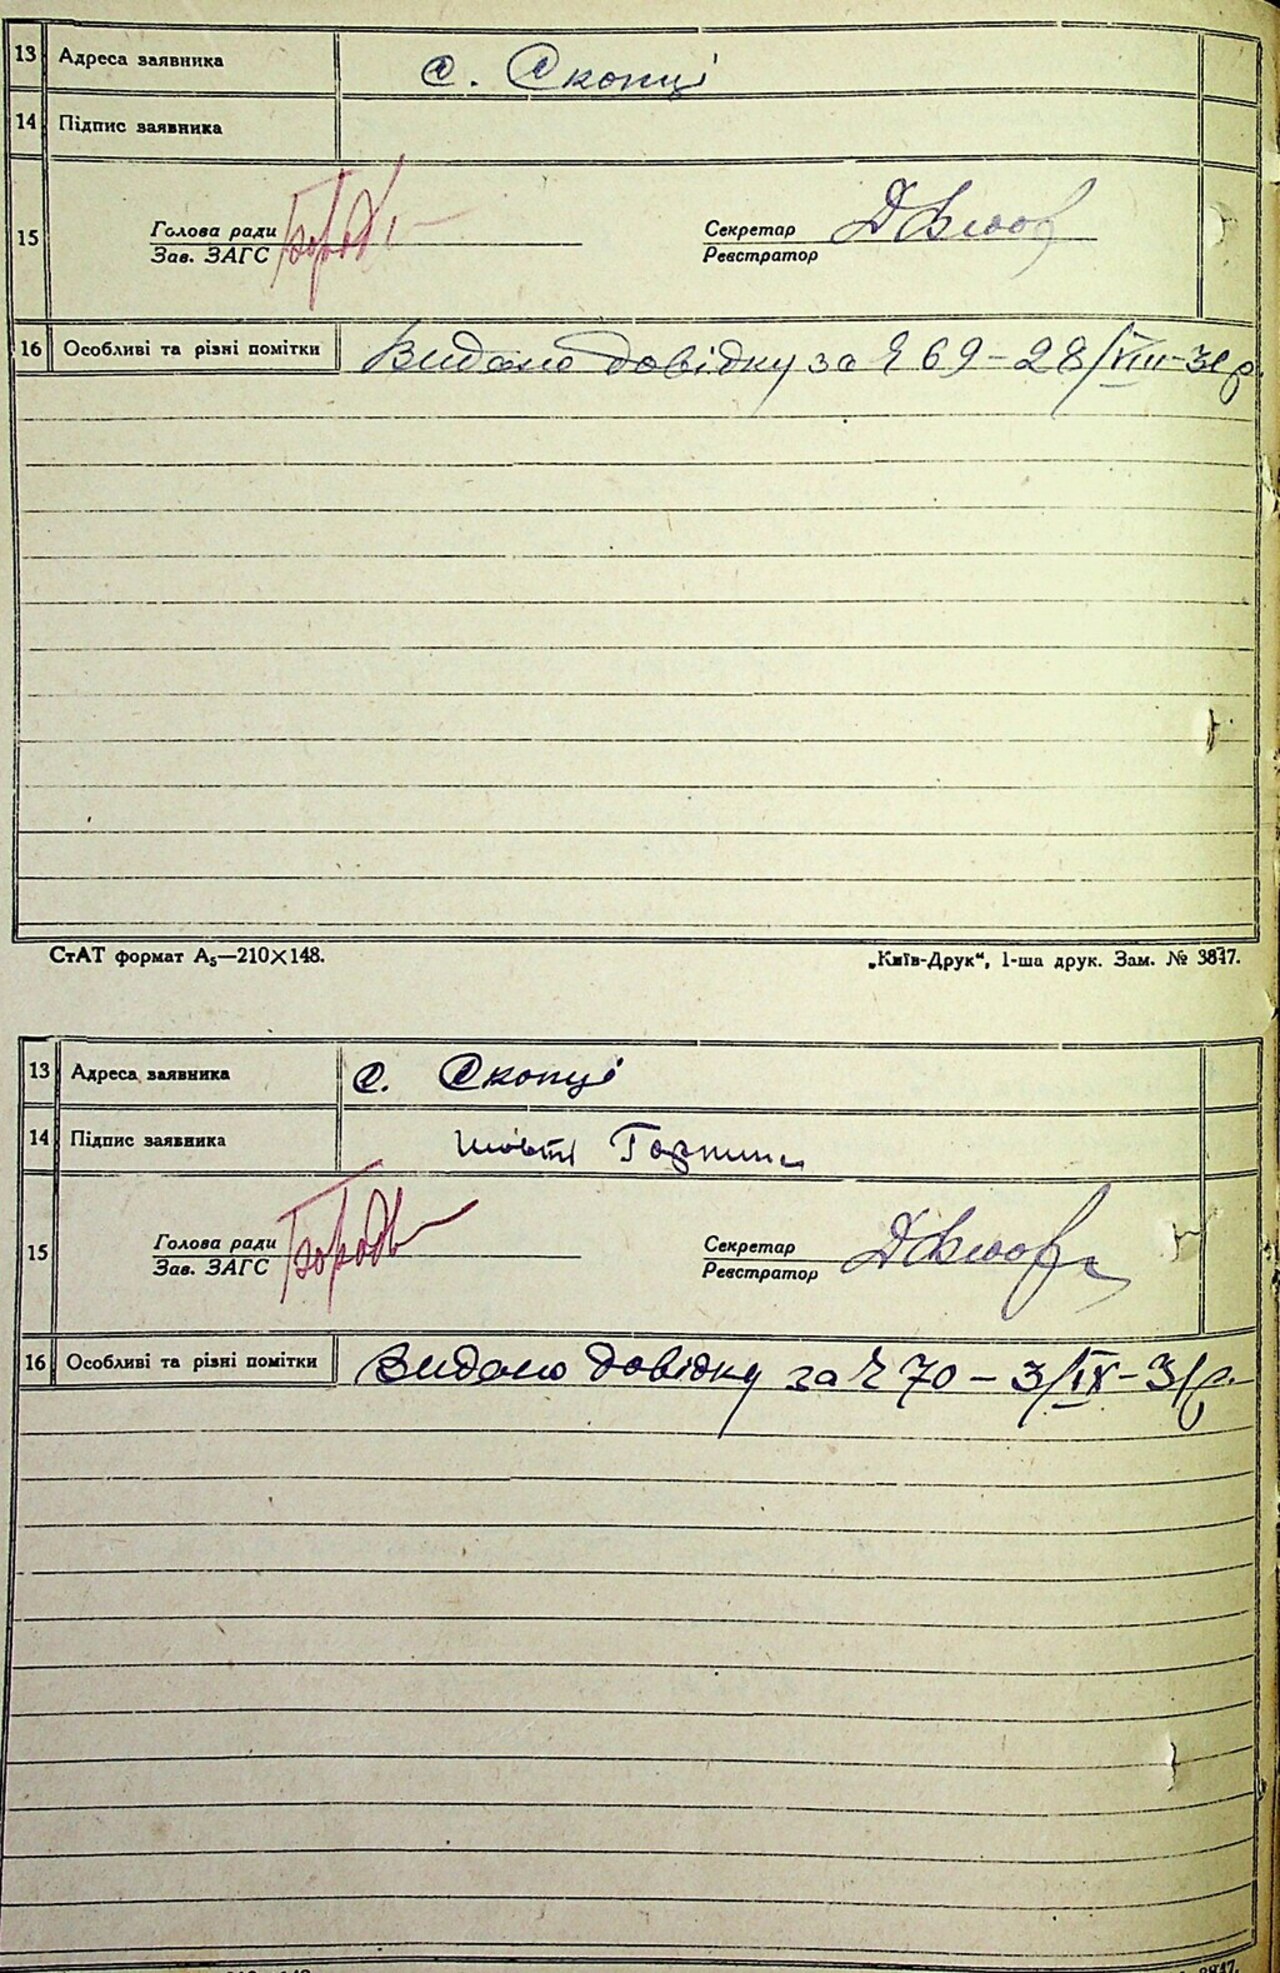 13 Адреса заявника с. Скопці
14 Підпис заявника
15 Голова ради Секретар
Зав. ЗАГС Реєстратор
16 Особливі та різні помітки Видано довідку за № 69 – 28/VIII – 31 р.
СтАТ формат А₅—210×148. „Київ-Друк“, 1-ша друк. Зам. № 3847.
13 Адреса заявника с. Скопці
14 Підпис заявника
15 Голова ради Секретар
Зав. ЗАГС Реєстратор
16 Особливі та різні помітки Видано довідку за № 70 – 3/IX – 31 р.